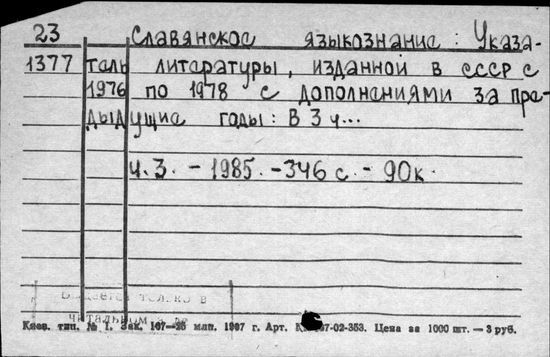 23 Славянское языкознание: Указа-
1377 тель литературы, изданной в СССР с
1976 по 1978 с дополнениями за пре-
дыдущие годы: В 3 ч...
ч. 3. - 1985. - 346 с. - 90 к.
только в
Киев. тип. № 1. Зак. 167—25 млн. 1967 г. Арт. 67-02-353. Цена за 1000 шт. — 3 руб.